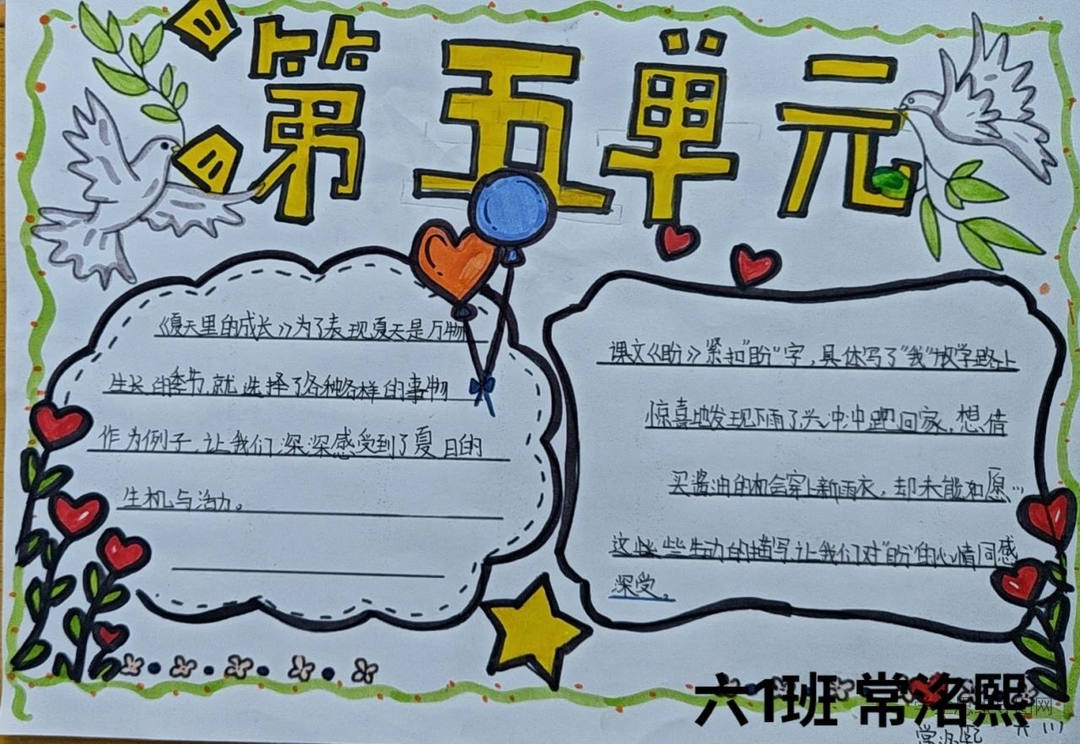 第五单元
《夏天里的成长》为了表现夏天是万物
生长的季节,就选择了各种各样的事物
作为例子,让我们深深感受到了夏日的
生机与活力。
课文《盼》紧扣"盼"字,具体写了"我"放学路上
惊喜地发现下雨了兴冲冲跑回家,想借
买酱油的机会穿上新雨衣,却未能如愿…
这些生动的描写让我们对"盼"的心情同感
深受。
六1班 常洺熙
常洺熙 六(1)